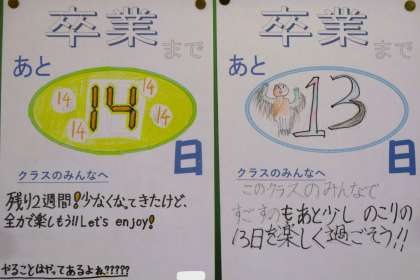 卒業まで
あと
14
14
14
14
14
日
クラスのみんなへ
残り2週間!少なくなってきたけど、
全力で楽しもう!!Let's enjoy!
やることはやってあるよね?????
卒業まで
あと
13
日
クラスのみんなへ
このクラスのみんなで
すごすのもあと少し のこりの
13日を楽しく過ごそう!!